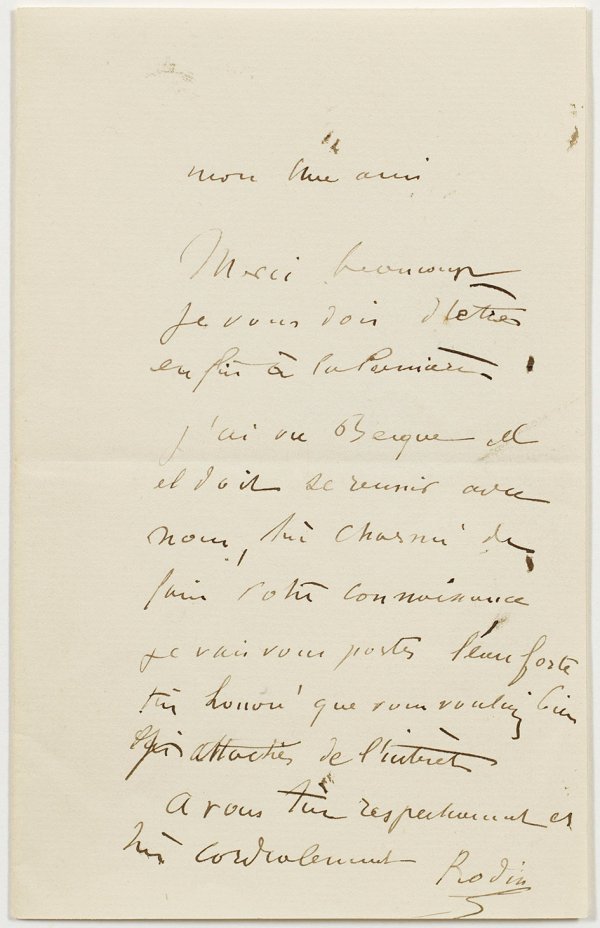 mon cher ami
Merci beaucoup
je vous dois d'être
enfin à la lumière
j'ai vu Becque
il doit se reunir avec
nous, très charmé de
faire votre connaissance
je vais vous porter l'eau forte
très honoré que vous vouliez bien
attacher de l'intérêt
A vous très respectueusement et
très cordialement Rodin